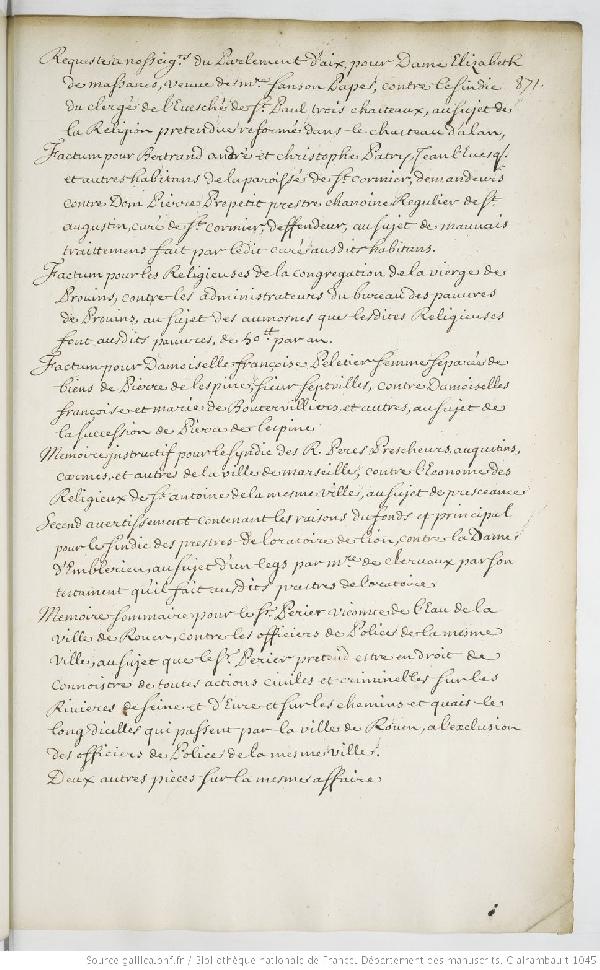 Requeste a nosseig.rs du Parlement d'aix, pour Dame Elizabeth
de massanes, veuve de m.re sanson Papes, contre le sindic 871.
du clergé de l'Euesché de s.t Paul trois chasteaux, au sujet de
la Religion pretendue reformé dans le chasteau d'alan,
Factum pour Bertrand andré et christophe Patry, Jean l'Euesq.
et autres habitans de la paroisse de s.t cormier, demandeurs
contre Dom Pierre Propetit prestre chanoine Regulier de s.t
augustin, curé de s.t cormier, deffendeur, au sujet de mauuais
traittemens fait par ledit curé ausdits habitans.
Factum pour les Religieuses de la congregation de la vierge de
Prouins, contre les administrateurs du bureau des pauures
de Prouins, au sujet des aumosnes que lesdites Religieuses
font ausdits pauures, de 50.tt par an.
Factum pour Damoiselle françoise Peletier femme separée de
biens de Pierre de lespine, sieur septvilles, contre Damoiselles
françoise et marie de Boutervilliers, et autres, au sujet de
la succession de Pierre de lespine.
Memoire instructif pour le syndic des R. Peres Prescheurs, auguitins,
carmes, et autres de la ville de marseille, contre l'Econome des
Religieux de s.t antoine de la mesme ville, au sujet de presceance
Second avertissement contenant les raisons du fonds et principal
pour le sindic des prestres de loratoire de Lion, contre la Dame
d'Emblerieu, au sujet d'un legs par m.re de cleruaux par son
testament qu'il fait ausdits prestres de loratoire.
Memoire sommaire pour le s.r Perier vicomte de l'Eau de la
ville de Rouen, contre les officiers de Police de la mesme
ville, au sujet que le s.r Perier pretend estre en droit de
connoistre de toutes actions ciuiles et criminelles sur les
Riuieres de seine et d'Eure et sur les chemins et quais le
long dicelles qui passent par la ville de Roüen, a l'exclusion
des officiers de Police de la mesme ville.
Deux autres pieces sur la mesme affaire.
Source gallica.bnf.fr / Bibliothèque nationale de France. Département des manuscrits. Clairambault 1045